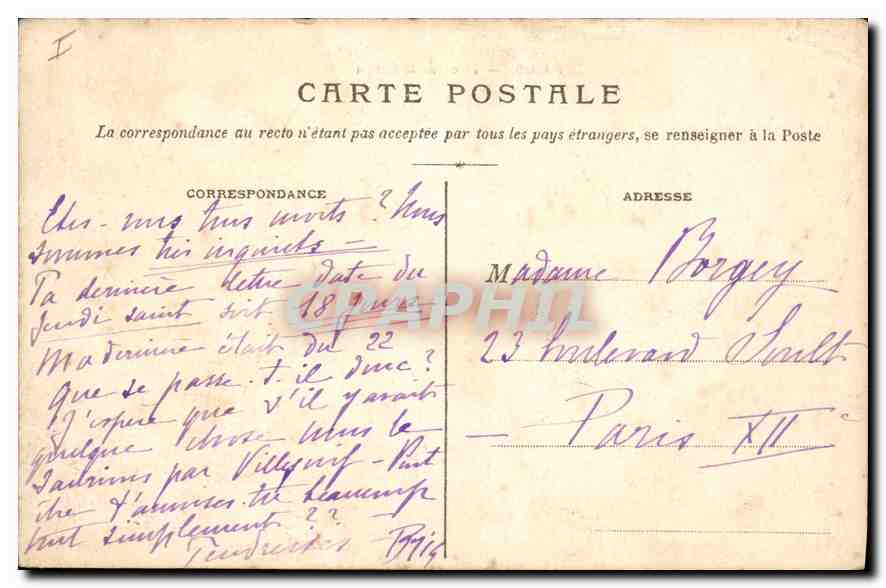 I
CARTE POSTALE
La correspondance au recto n'étant pas acceptée par tous les pays étrangers, se renseigner à la Poste
CORRESPONDANCE
Etes-vous tous morts ? Nous
sommes très inquiets -
Ta dernière lettre date du
Jeudi saint soit 18 jours
Ma dernière était du 22
Que se passe-t-il donc ?
J'espère que s'il y avait
quelque chose nous le
saurions par Villejuif - Peut
être t'amuses-tu beaucoup
tout simplement ??
Tendresses
ADRESSE
Madame Borgey
23 boulevard Soult
- Paris XII e
CPAPHIL